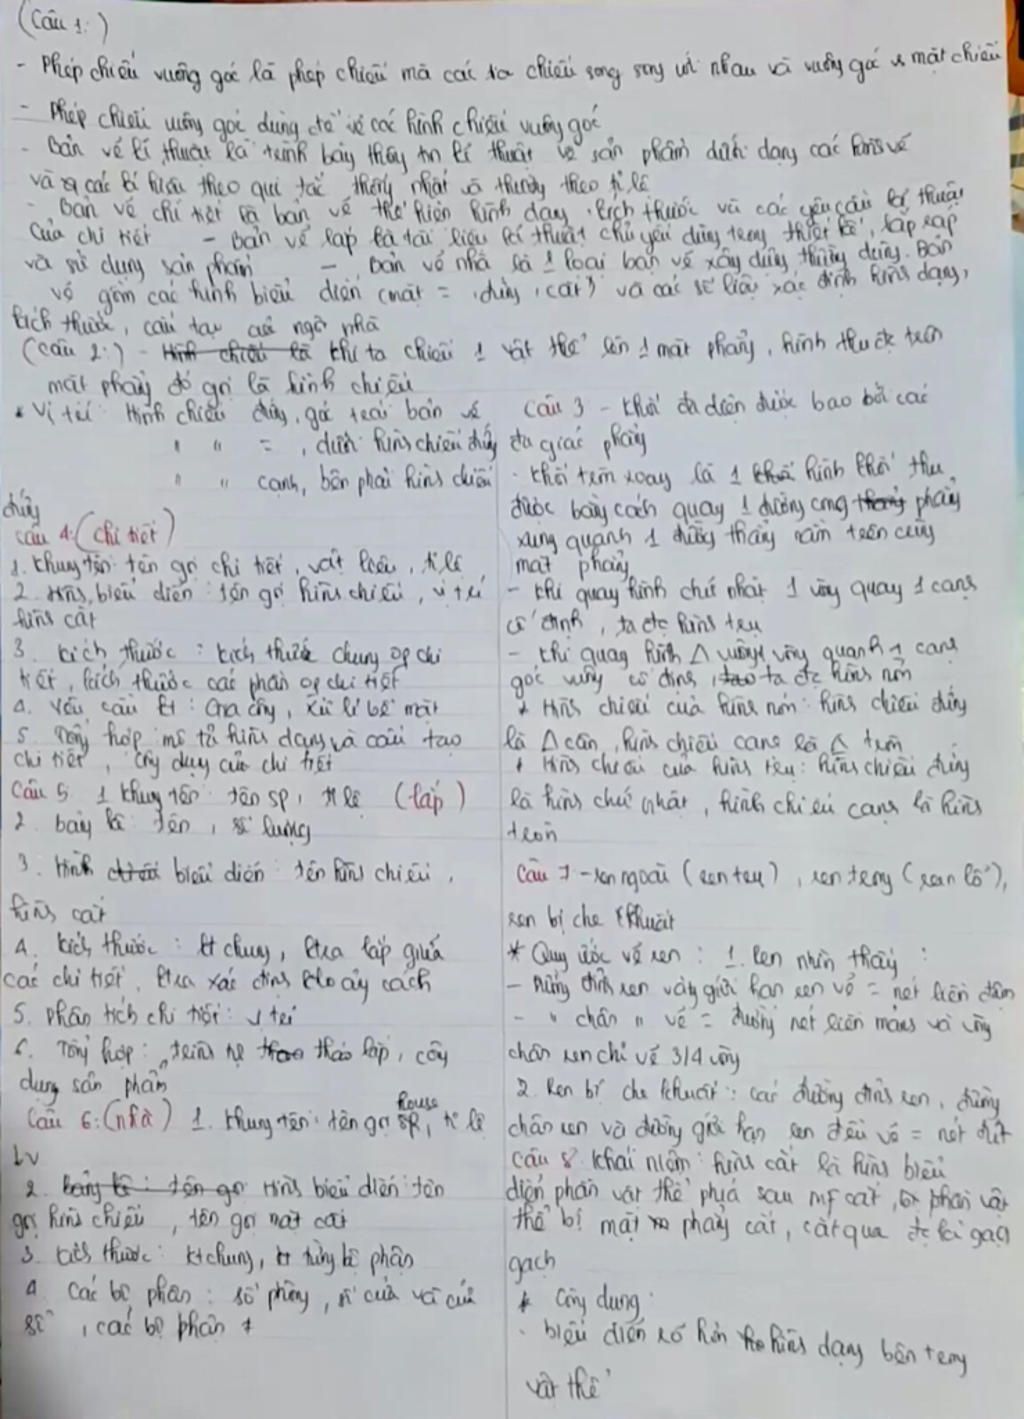 (Câu 1:)
- Phép chiếu vuông góc là phép chiếu mà các tia chiếu song song với nhau và vuông góc vs mặt chiếu
- Phép chiếu vuông góc dùng để vẽ các hình chiếu vuông góc
- Bản vẽ kĩ thuật là trình bày thông tin kĩ thuật về sản phẩm dưới dạng các hình vẽ
và các kí hiệu theo qui tắc thống nhất và thường theo tỉ lệ
- Bản vẽ chi tiết là bản vẽ thể hiện hình dạng, kích thước và các yêu cầu kĩ thuật
của chi tiết - Bản vẽ lắp là tài liệu kĩ thuật chủ yếu dùng trong thiết kế, lắp ráp
và sử dụng sản phẩm - Bản vẽ nhà là 1 loại bản vẽ xây dựng thường dùng. Bản
vẽ gồm các hình biểu diễn (mặt =, đứng, cắt) và các số liệu xác định hình dạng,
kích thước, cấu tạo của ngôi nhà
(Câu 2:) - Hình chiếu là khi ta chiếu 1 vật thể lên 1 mặt phẳng, hình thu đc trên
mặt phẳng đó gọi là hình chiếu
* Vị trí: Hình chiếu đứng, góc trái bản vẽ
" " =, dưới hình chiếu đứng
" " cạnh, bên phải hình chiếu
đứng
Câu 4: (chi tiết)
1. Khung tên: tên gọi chi tiết, vật liệu, tỉ lệ
2. Hình biểu diễn: tên gọi hình chiếu, vị trí
hình cắt
3. Kích thước: kích thước chung of chi
tiết, kích thước các phần of chi tiết
4. Yêu cầu kt: Gia công, xử lí bề mặt
5. Tổng hợp: mô tả hình dạng và cấu tạo
chi tiết, công dụng của chi tiết
Câu 5: 1 Khung tên: tên SP, tỉ lệ (lắp)
2. bảng kê: tên, số lượng
3. Hình chiếu biểu diễn: tên hình chiếu,
hình cắt
4. Kích thước: kt chung, kt lắp giữa
các chi tiết, kt xác định khoảng cách
5. Phân tích chi tiết: vị trí
6. Tổng hợp: trình tự tháo lắp, công
dụng sản phẩm
Câu 6: (nhà) 1. Khung tên: tên gọi house, tỉ lệ
bv
2. Bảng kê: tên gọi Hình biểu diễn: tên
gọi hình chiếu, tên gọi mặt cắt
3. Kích thước: kt chung, kt từng bộ phận
4. Các bộ phận: số phòng, số cửa và cửa
sổ, các bộ phận ≠
Câu 3 - Khối đa diện được bao bởi các
đa giác phẳng
- Khối tròn xoay là 1 khối hình khối thu
được bằng cách quay 1 đường cong phẳng
xung quanh 1 đường thẳng nằm trên cùng
mặt phẳng
- Khi quay hình chữ nhật 1 vòng quay 1 cạnh
cố định, ta đc hình trụ
- Khi quay hình Δ vuông vòng quanh 1 cạnh
góc vuông cố định, ta đc hình nón
* Hình chiếu của hình nón: hình chiếu đứng
là Δ cân, hình chiếu cạnh là tròn
* Hình chiếu của hình trụ: hình chiếu đứng
là hình chữ nhật, hình chiếu cạnh là hình
tròn
Câu 7 - ren ngoài (ren trục), ren trong (ren lỗ),
ren bị che khuất
* Quy ước vẽ ren: 1. Ren nhìn thấy:
- Đường đỉnh ren và giới hạn ren vẽ = nét liền đậm
- " chân " vẽ = đường nét liền mảnh và vòng
chân ren chỉ vẽ 3/4 vòng
2. Ren bị che khuất: các đường đỉnh ren, đường
chân ren và đường giới hạn ren đều vẽ = nét đứt
Câu 8. Khái niệm: hình cắt là hình biểu
diễn phần vật thể phía sau mp cắt, phần vật
thể bị mặt phẳng cắt, cắt qua đc kẻ gạch
gạch
* Công dụng:
- biểu diễn rõ hơn hình dạng bên trong
vật thể